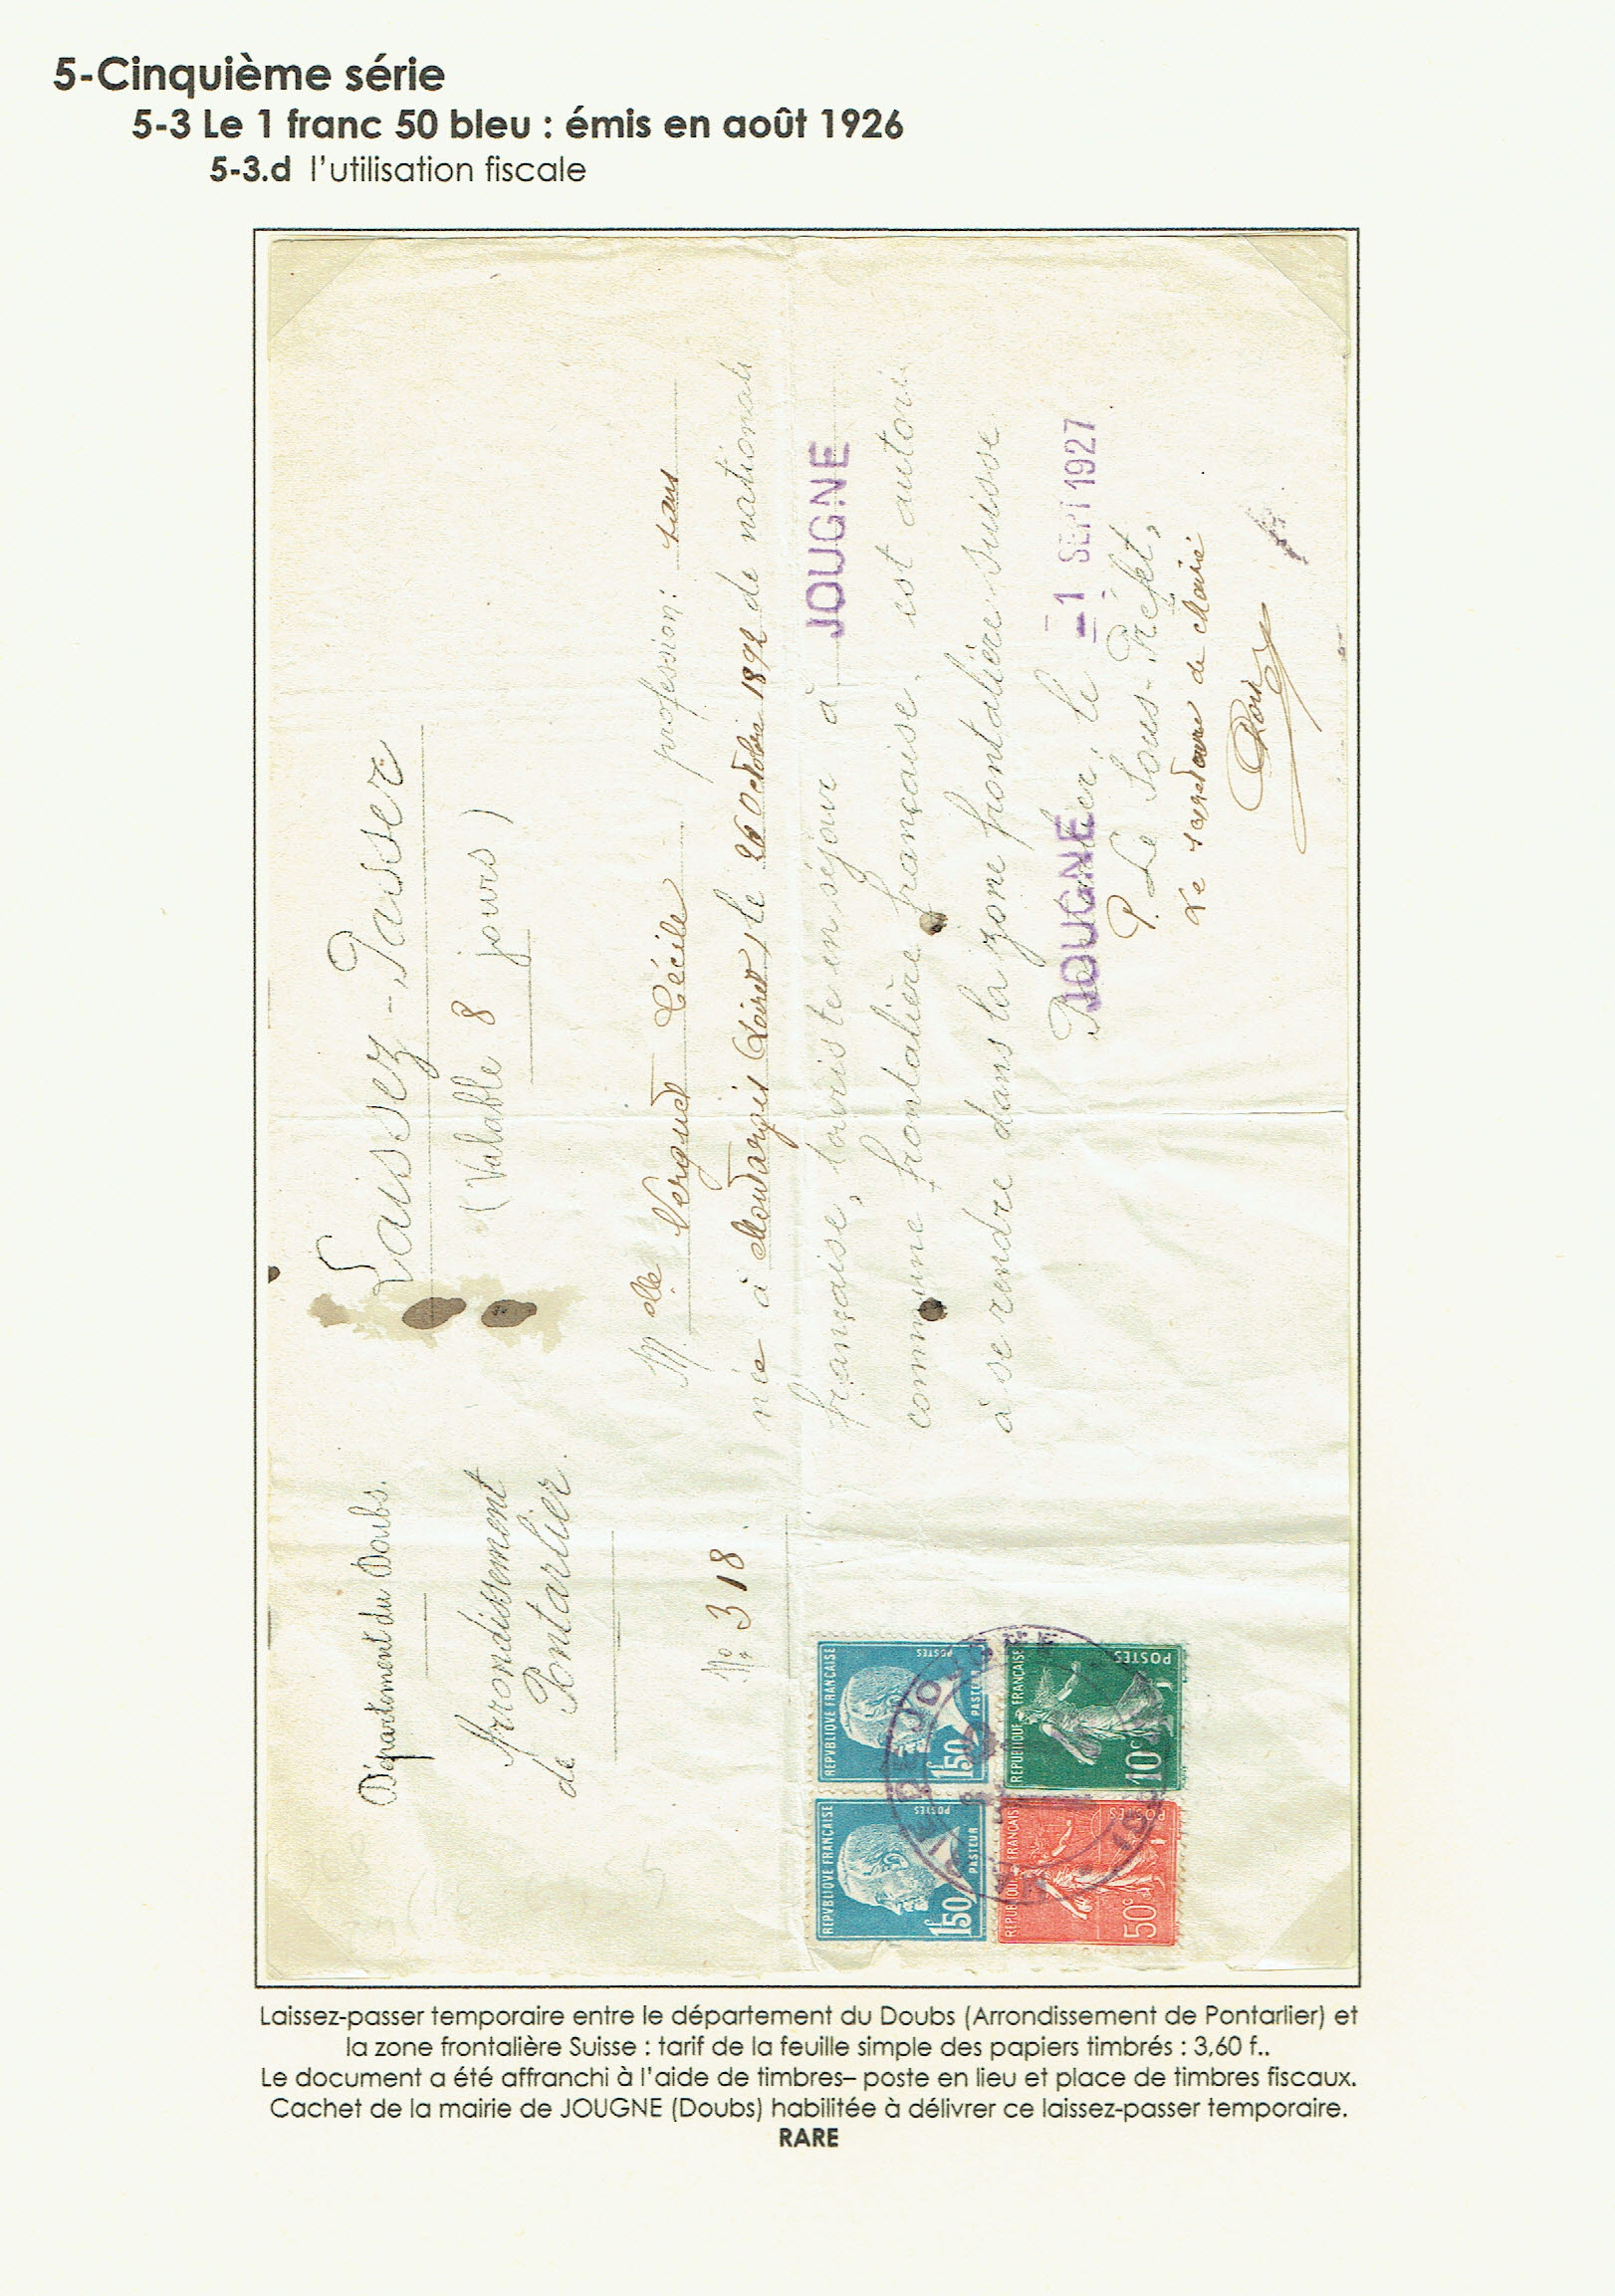 5-Cinquième série
5-3 Le 1 franc 50 bleu : émis en août 1926
5-3.d l'utilisation fiscale
Département du Doubs.
Arrondissement
de Pontarlier.
No. 318.
Laissez-Passer
(Valable 8 jours)
Melle Vergnet Cécile profession: sans
née à Montargis (Loiret) le 26 Octobre 1892 de nationalité
française, touriste en séjour à JOUGNE
commune frontalière française, est autorisé
à se rendre dans la zone frontalière suisse
JOUGNE le -1 SEPT 1927
P. Le Sous-Préfet,
Le secrétaire de Mairie
REPVBLIQVE FRANÇAISE
POSTES
1f50
PASTEUR
REPVBLIQVE FRANÇAISE
POSTES
1f50
PASTEUR
REPUBLIQUE FRANÇAISE
POSTES
50c
REPUBLIQUE FRANÇAISE
POSTES
10c
Laissez-passer temporaire entre le département du Doubs (Arrondissement de Pontarlier) et
la zone frontalière Suisse : tarif de la feuille simple des papiers timbrés : 3,60 f..
Le document a été affranchi à l'aide de timbres– poste en lieu et place de timbres fiscaux.
Cachet de la mairie de JOUGNE (Doubs) habilitée à délivrer ce laissez-passer temporaire.
RARE